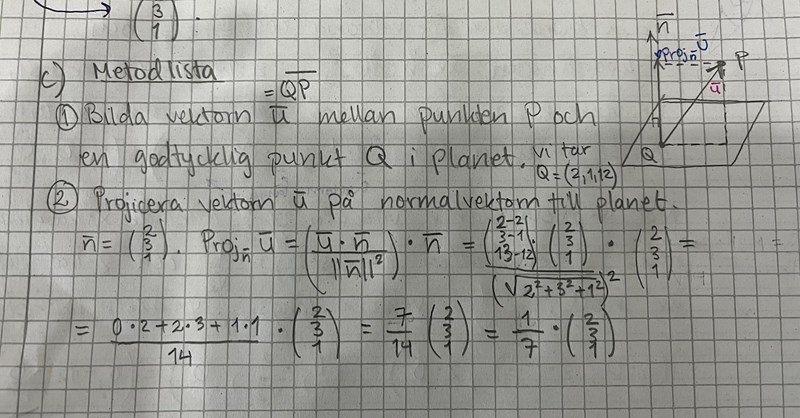 (3 1) .
c) Metodlista
① Bilda vektorn ū = QP mellan punkten P och
en godtycklig punkt Q i planet. Vi tar Q = (2,1,12)
② Projicera vektorn ū på normalvektorn till planet.
n̄ = (2 3 1). Proj_n̄ ū = (ū · n̄ / ||n̄||²) · n̄ = (2-2 3-1 13-12) · (2 3 1) / (√2²+3²+1²)² · (2 3 1) =
= 0·2+2·3+1·1 / 14 · (2 3 1) = 7/14 (2 3 1) = 1/7 · (2 3 1)
n̄
proj_n̄ ū
P
ū
Q